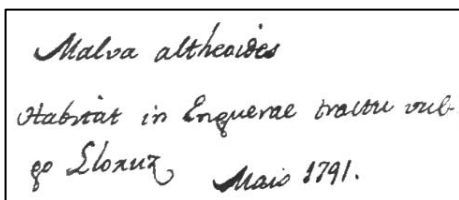 Malva altheoides
Habitat in Enguerae tractu vul-
go Lloxuz Maio 1791.